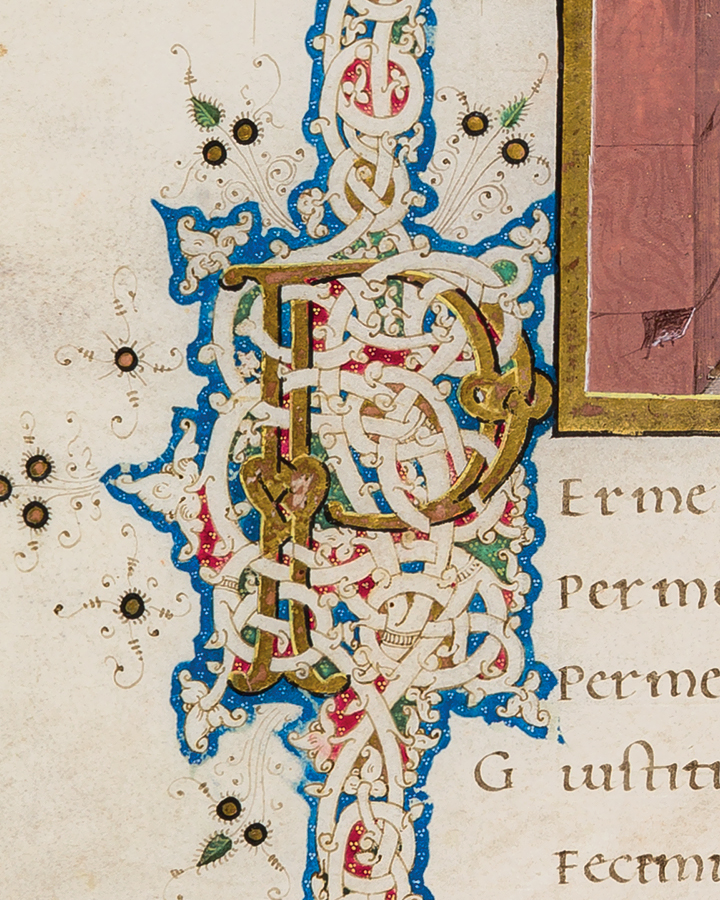 P Er me
Per m
Per me
G iuſtiti
Fecemi